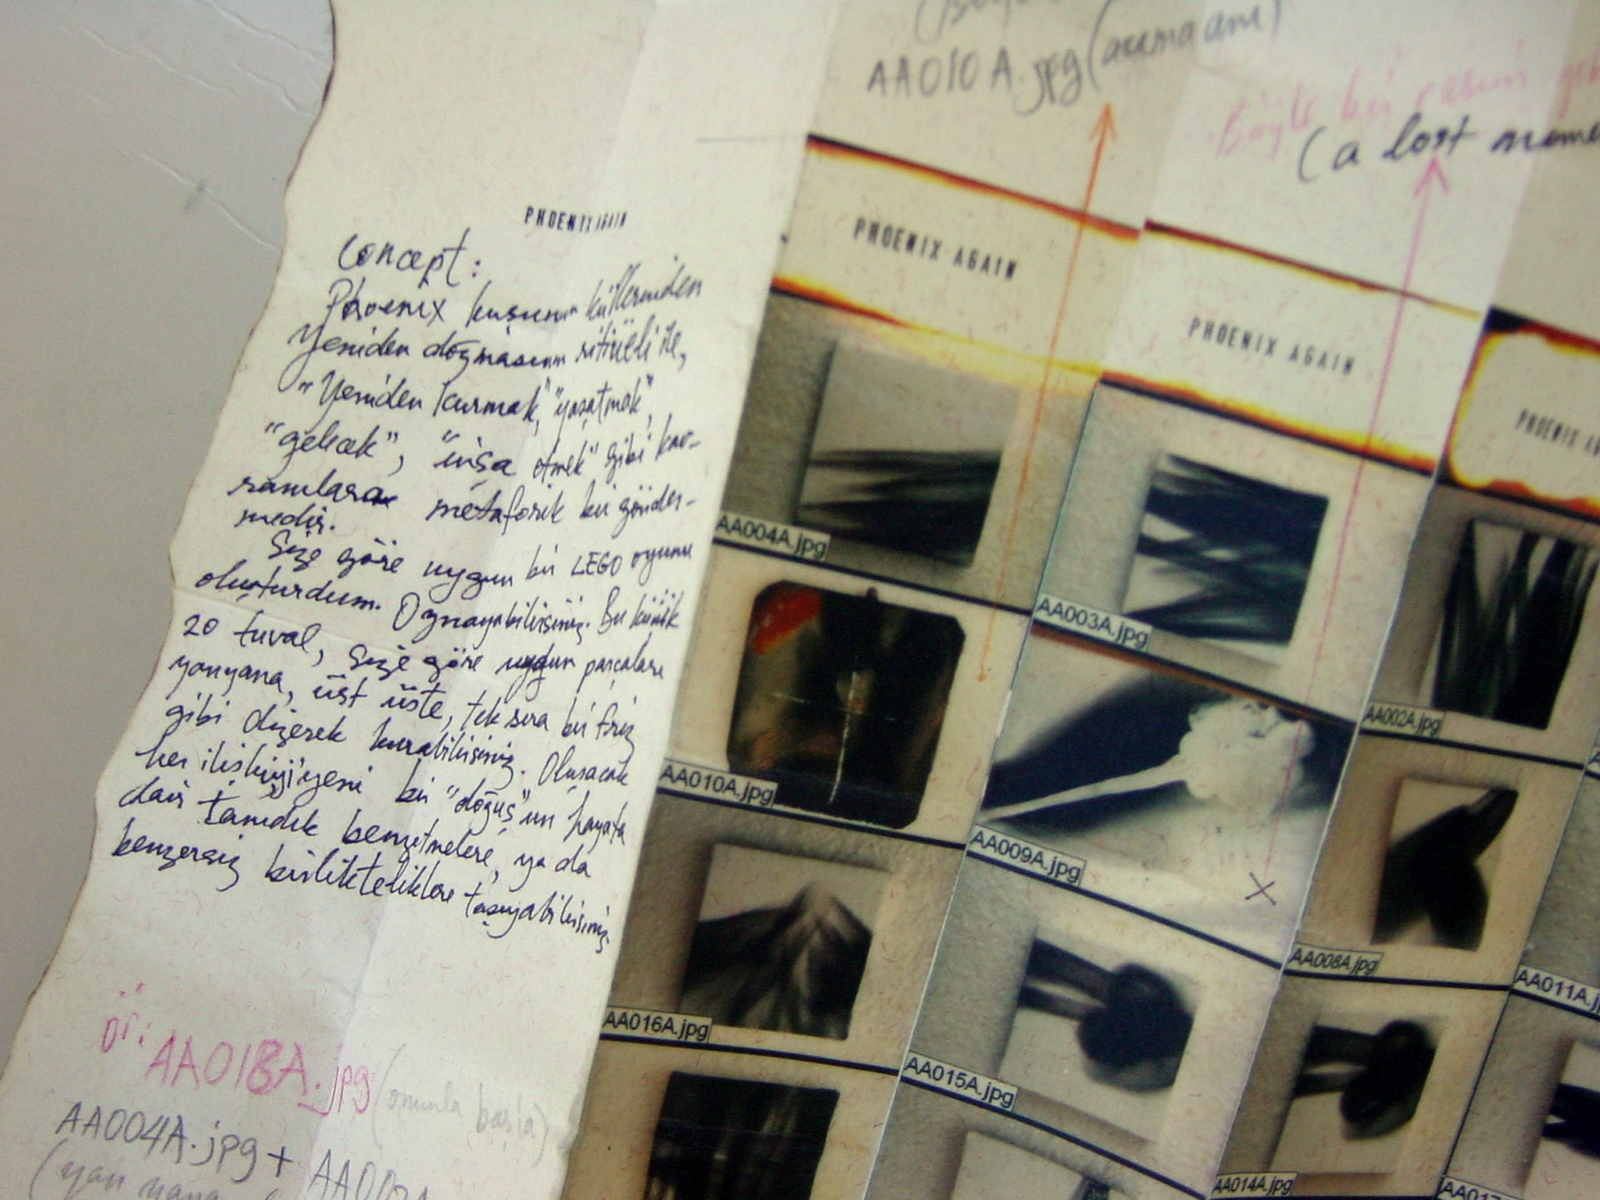 AA010A.jpg
Böyle bir
(a lost
PHOENIX AGAIN
concept:
Phoenix kuşunun küllerinden
Yeniden doğmasının ritüeli ile,
"Yeniden kurmak", "yaşatmak",
"gelecek", "inşa etmek" gibi kav-
ramlara metaforik bir gönder-
medir.
Size göre uygun bir LEGO oyunu
oluşturdum. Oynayabilirsiniz. Bu küçük
20 tuval, size göre uygun parçaları
yanyana, üst üste, tek sıra bir friz
gibi dizerek kurabilirsiniz. Oluşacak
her ilişkiyi yeni bir "doğuş"un hayata
dair tanıdık benzetmelere, ya da
benzersiz birlikteliklere taşıyabilirsiniz.
ör: AA018A.jpg (onunla başla)
AA004A.jpg +
(yan yana
PHOENIX AGAIN
PHOENIX AGAIN
PHOENIX
AA004A.jpg
AA003A.jpg
AA002A.jpg
AA010A.jpg
AA009A.jpg
X
AA008A.jpg
AA011A.j
AA016A.jpg
AA015A.jpg
AA014A.jpg